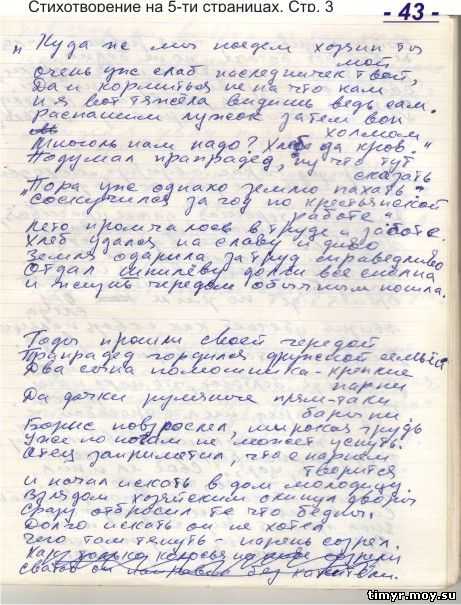 Стихотворение на 5-ти страницах. Стр. 3
- 43 -
„Куда же мы поедем хозяин ты
мой
очень уж слаб наследничек твой,
Да и кормиться не на что нам
и я вот тяжела видишь ведь сам.
Распашем лужок за тем вон
холмом
Много ль нам надо? Хлеб да кров."
Подумал прапрадед, ну что тут
сказать
„Пора уже однако землю пахать"
Соскучился за год по крестьянской
работе"
Лето промчалось в труде и заботе.
Хлеб удался на славу и диво
Земля одарила за труд справедливо
Отдал долги все сполна
и жизнь чередом обычным пошла.
Годы прошли своей чередой
Прапрадед гордился дружной семьёй
Два сына помощника - крепкие
парни
Да дочки румяные прям-таки
барыни.
Борис повзрослел, широкая грудь
Уже по ночам не может уснуть.
Отец заприметил, что с парнем
творится
и начал искать в дом молодицу.
Взглядом хозяйским окинул дворы
Сразу отбросил те что бедны.
Долго искать он не хотел
Чего там тянуть - парень созрел.
сватов он без
timyr.moy.su